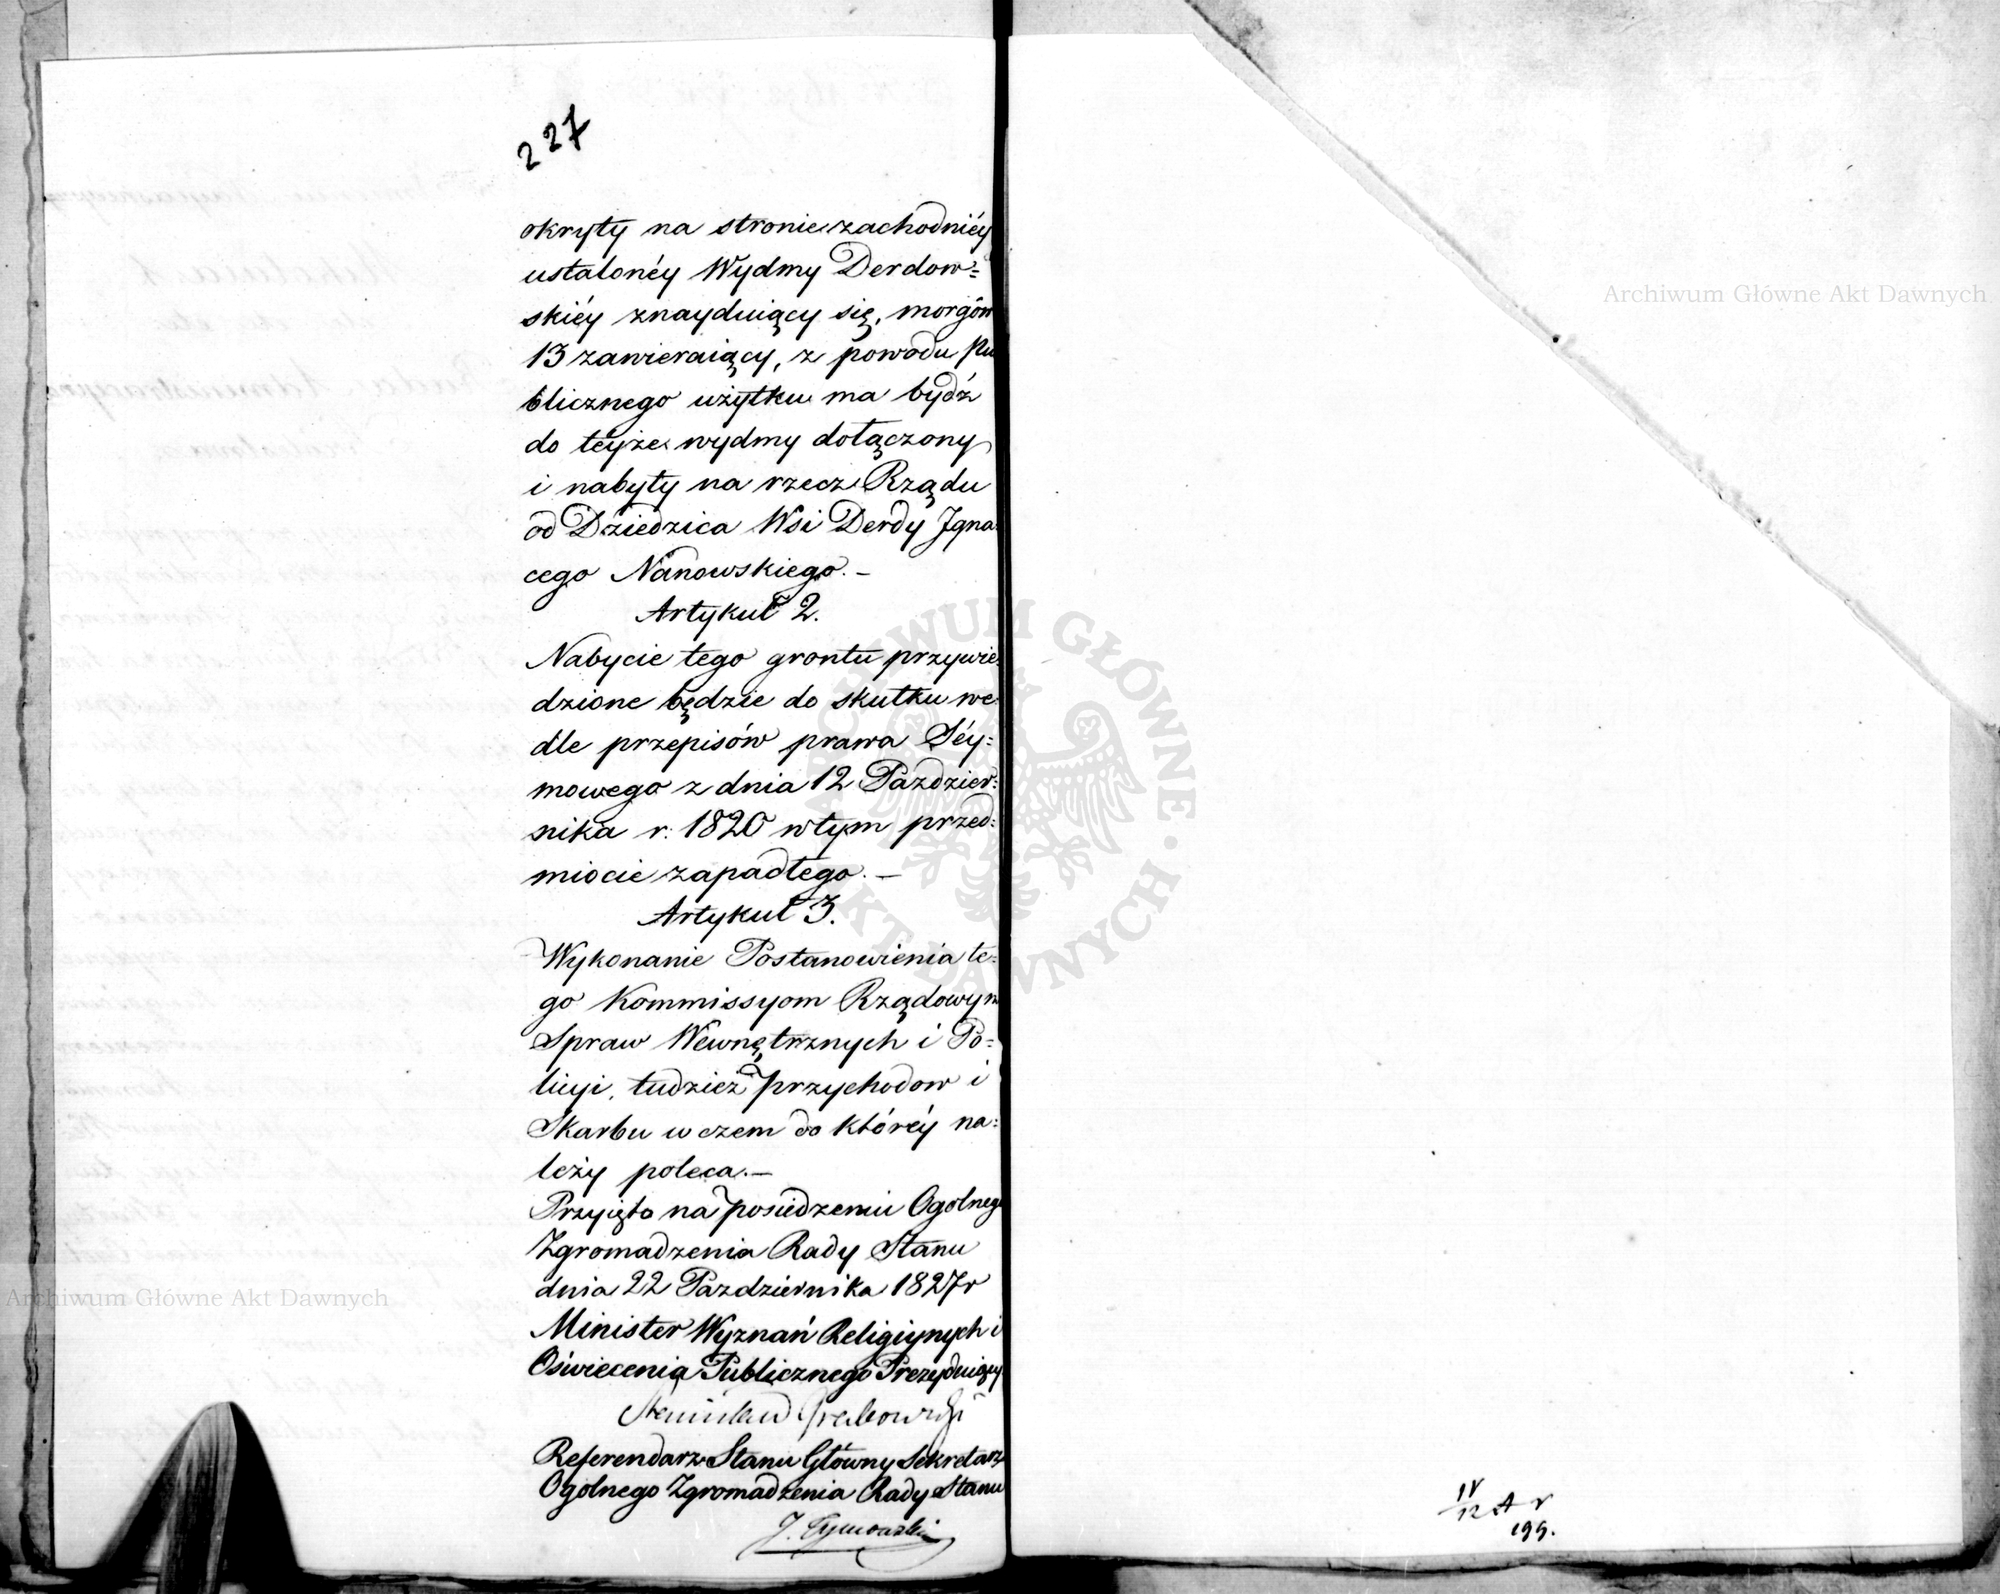 227
okryty na stronie zachodniéy
ustalonéy Wydmy Derdow=
skiéy znayduiący się, morgów
13 zawieraiący, z powodu Pu
blicznego użytku ma bydź
do teyże wydmy dołączony
i nabyty na rzecz Rządu
od Dziedzica Wsi Derdy Igna=
cego Nanowskiego. –
Artykuł 2.
Nabycie tego grontu przywie=
dzione będzie do skutku we=
dle przepisów prawa Séy=
mowego z dnia 12 Pazdzier=
nika r: 1820 w tym przed=
miocie zapadłego. –
Artykuł 3.
Wykonanie Postanowienia te=
go Kommissyom Rządowym
Spraw Wewnętrznych i Po=
licyi, tudzież przychodow i
Skarbu w czem do któréy na=
leży poleca. –
Przyięto na posiedzeniu Ogolnego
Zgromadzenia Rady Stanu
dnia 22 Pazdziernika 1827 r
Minister Wyznań Religiynych i
Oświecenia Publicznego Prezyduiący
Stanisław Grabowski
Referendarz Stanu Główny Sekretarz
Ogolnego Zgromadzenia Rady Stanu
J. Tymowski
IV
12 A r
199.
Archiwum Główne Akt Dawnych
Archiwum Główne Akt Dawnych
ARCHIWUM GŁÓWNE AKT DAWNYCH